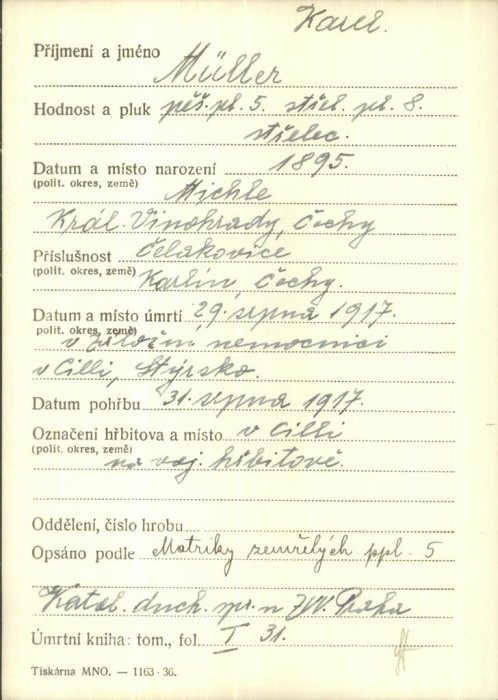 Karel.
Příjmení a jméno
Müller
Hodnost a pluk pěš. pl. 5. střel. pl. 8.
střelec.
Datum a místo narození 1895.
(polit. okres, země) Michle
Král. Vinohrady, Čechy
Příslušnost Čelakovice
(polit. okres, země) Karlín, Čechy.
Datum a místo úmrtí 29. srpna 1917.
polit. okres, země)
v záložní nemocnici
v Cilli, Štýrsko.
Datum pohřbu 31. srpna 1917.
Označení hřbitova a místo v Cilli
(polit. okres, země) na voj. hřbitově.
Oddělení, číslo hrobu
Opsáno podle Matriky zemřelých ppl. 5
Katol. duch. spr. n ZVV. Praha
Úmrtní kniha: tom., fol. I 31.
Tiskárna MNO. — 1163-36.